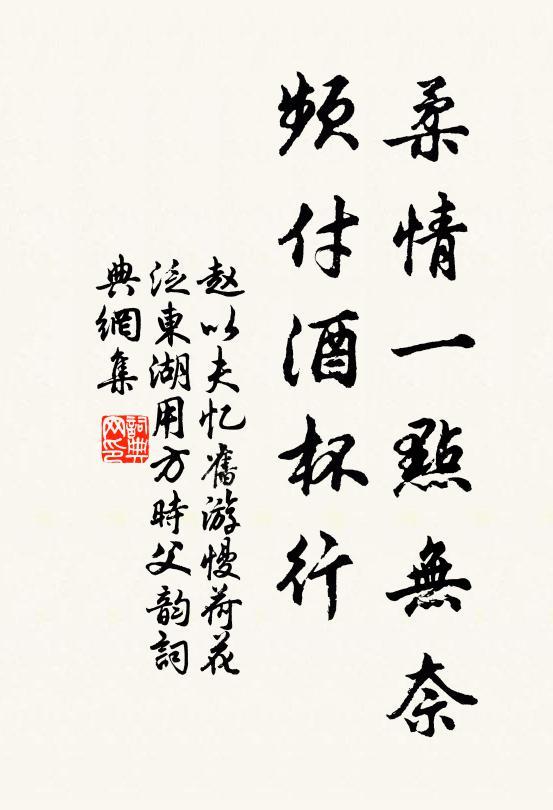 柔情一點無奈
頻付酒杯行
赵以夫忆舊游慢荷花
泛東湖用方時父韵詞
典網集
詞典网印